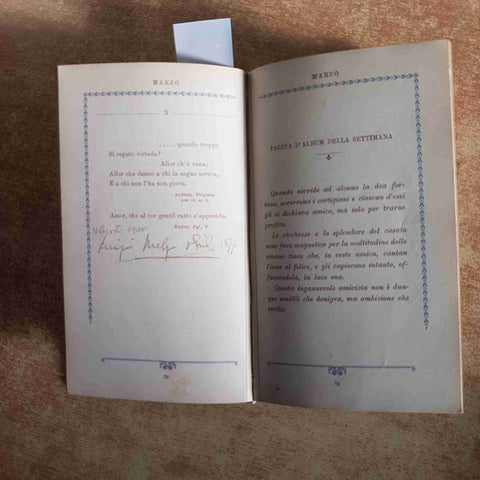 MARZO
3
..... quando troppo
Si reputa virtude?
Allor ch'è vana;
Allor che danno a chi la segue arreca,
E a chi non l'ha non giova.
ALFIERI, Virginia,
Amor, che al cor gentil ratto s'apprende.
DANTE, Inf., V.
MARZO
PAGINA D'ALBUM DELLA SETTIMANA
Quando sorride ad alcuno la dea for-
tuna, accorrono i cortigiani e ciascun d'essi
gli si dichiara amico, ma solo per trarne
profitto.
Le ricchezze e lo splendore del casato
sono faro magnetico per la moltitudine delle
umane tinee che, in veste amica, cantan
l'inno al felice, e gli rapiscono intanto, of-
fuscandola, la luce sua.
Questa ingannevole amicizia non è dun-
que umiltà che denigra, ma ambizione che
esalta.